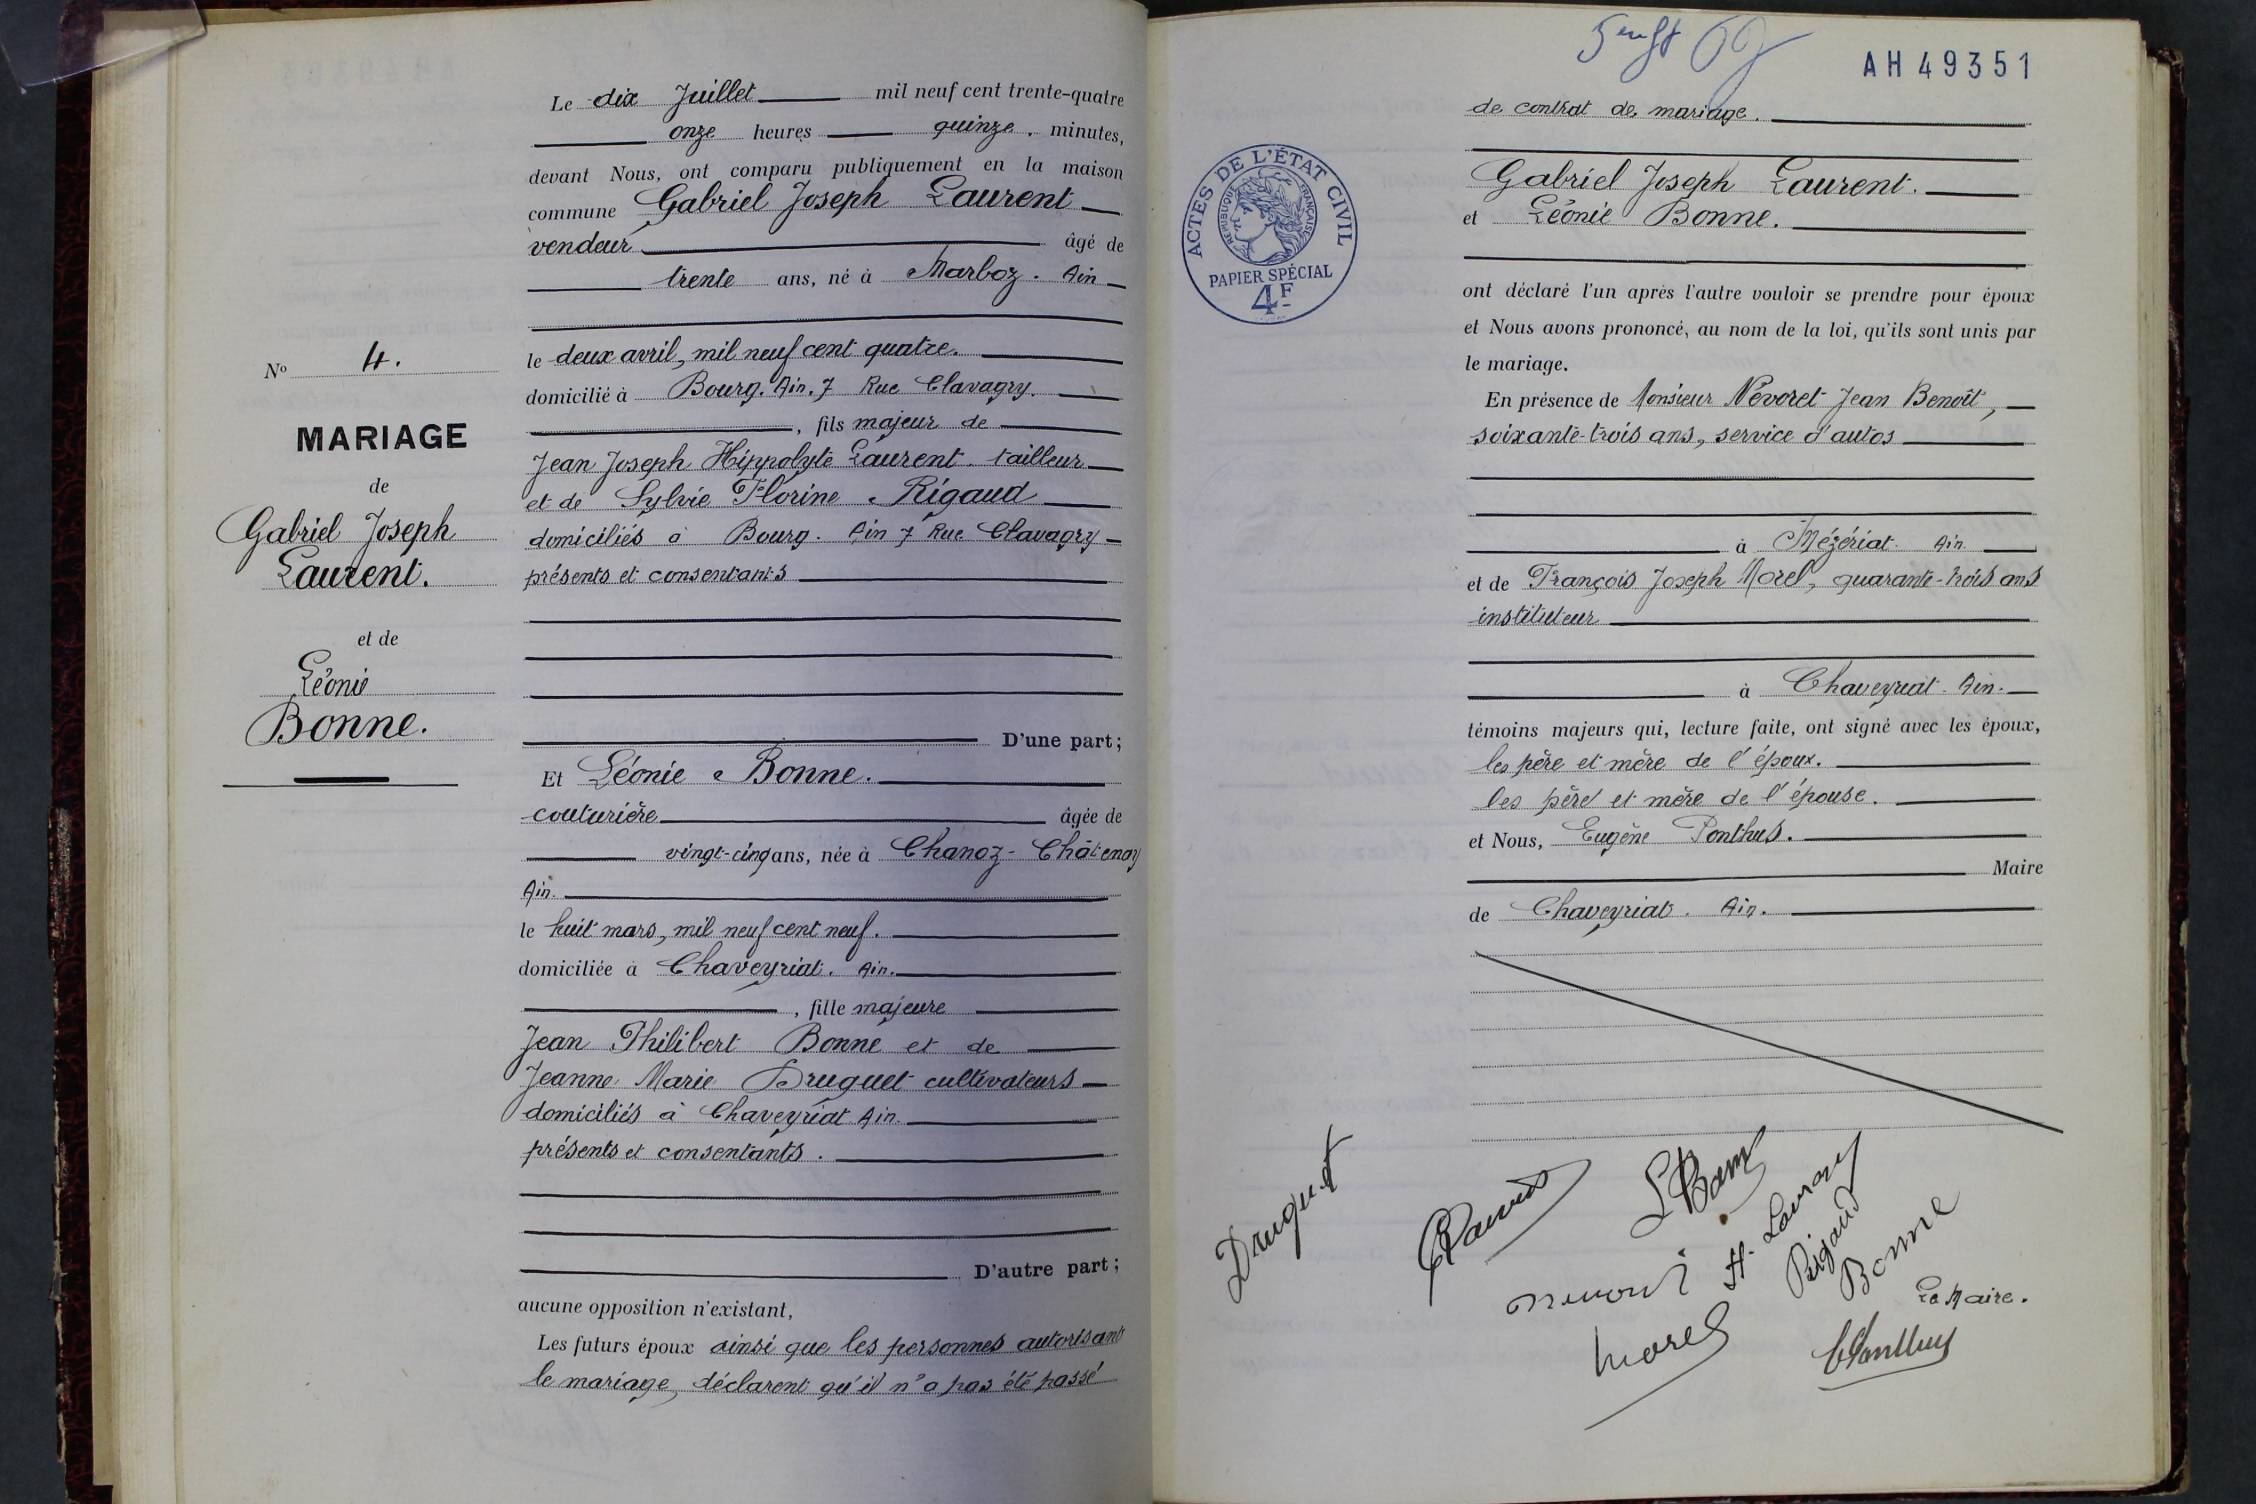 Le dix Juillet mil neuf cent trente-quatre
onze heures quinze . minutes,
devant Nous, ont comparu publiquement en la maison
commune Gabriel Joseph Laurent
vendeur âgé de
trente ans, né à Marboz . Ain
le deux avril, mil neuf cent quatre.
domicilié à Bourg. Ain. 7 Rue Clavagry.
, fils majeur de
Jean Joseph Hippolyte Laurent. tailleur
et de Sylvie Florine Rigaud
domiciliés à Bourg. Ain 7 Rue Clavagry
présents et consentants
D'une part;
Et Léonie Bonne.
couturière âgée de
vingt-cinq ans, née à Chanoz-Châtenay
Ain.
le huit mars, mil neuf cent neuf.
domiciliée à Chaveyriat. Ain.
, fille majeure
Jean Philibert Bonne et de
Jeanne Marie Druguet cultivateurs
domiciliés à Chaveyriat. Ain.
présents et consentants.
D'autre part;
aucune opposition n'existant,
Les futurs époux ainsi que les personnes autorisant
le mariage, déclarent qu'il n'a pas été passé
No 4.
MARIAGE
de
Gabriel Joseph
Laurent.
et de
Léonie
Bonne.
AH49351
ACTES DE L'ÉTAT CIVIL
RÉPUBLIQUE FRANÇAISE
PAPIER SPÉCIAL
4F
de contrat de mariage.
Gabriel Joseph Laurent.
et Léonie Bonne.
ont déclaré l'un après l'autre vouloir se prendre pour époux
et Nous avons prononcé, au nom de la loi, qu'ils sont unis par
le mariage.
En présence de Monsieur Névoret Jean Benoît,
soixante-trois ans, service d'autos
à Mézériat. Ain.
et de François Joseph Morel, quarante-trois ans
instituteur
à Chaveyriat. Ain.
témoins majeurs qui, lecture faite, ont signé avec les époux,
les père et mère de l'époux.
les père et mère de l'épouse.
et Nous, Eugène Ponthus.
Maire
de Chaveyriat. Ain.
Druguet
L Bonne
H. Laurent
Rigaud
Bonne
Morel
Le Maire.